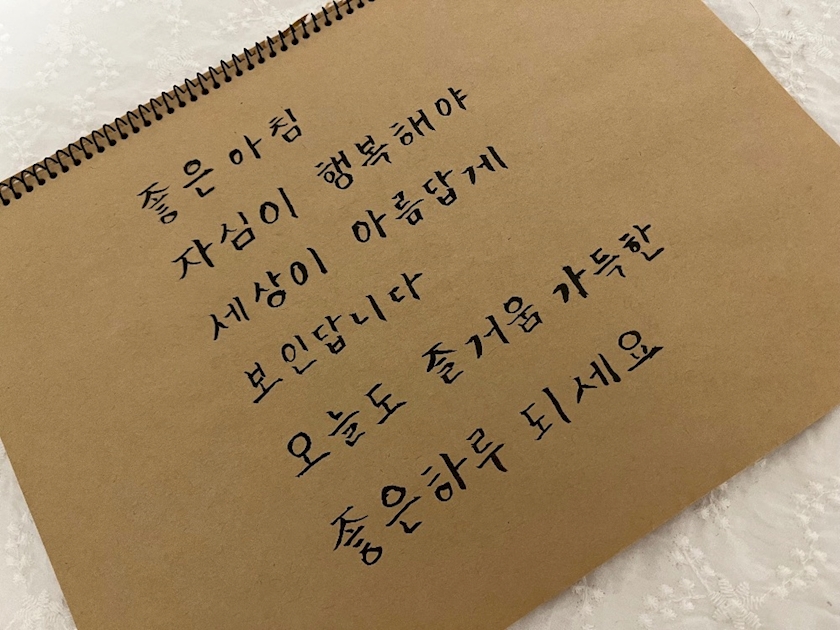 좋은 아침
자심이 행복해야
세상이 아름답게
보인답니다
오늘도 즐거움 가득한
좋은하루 되세요